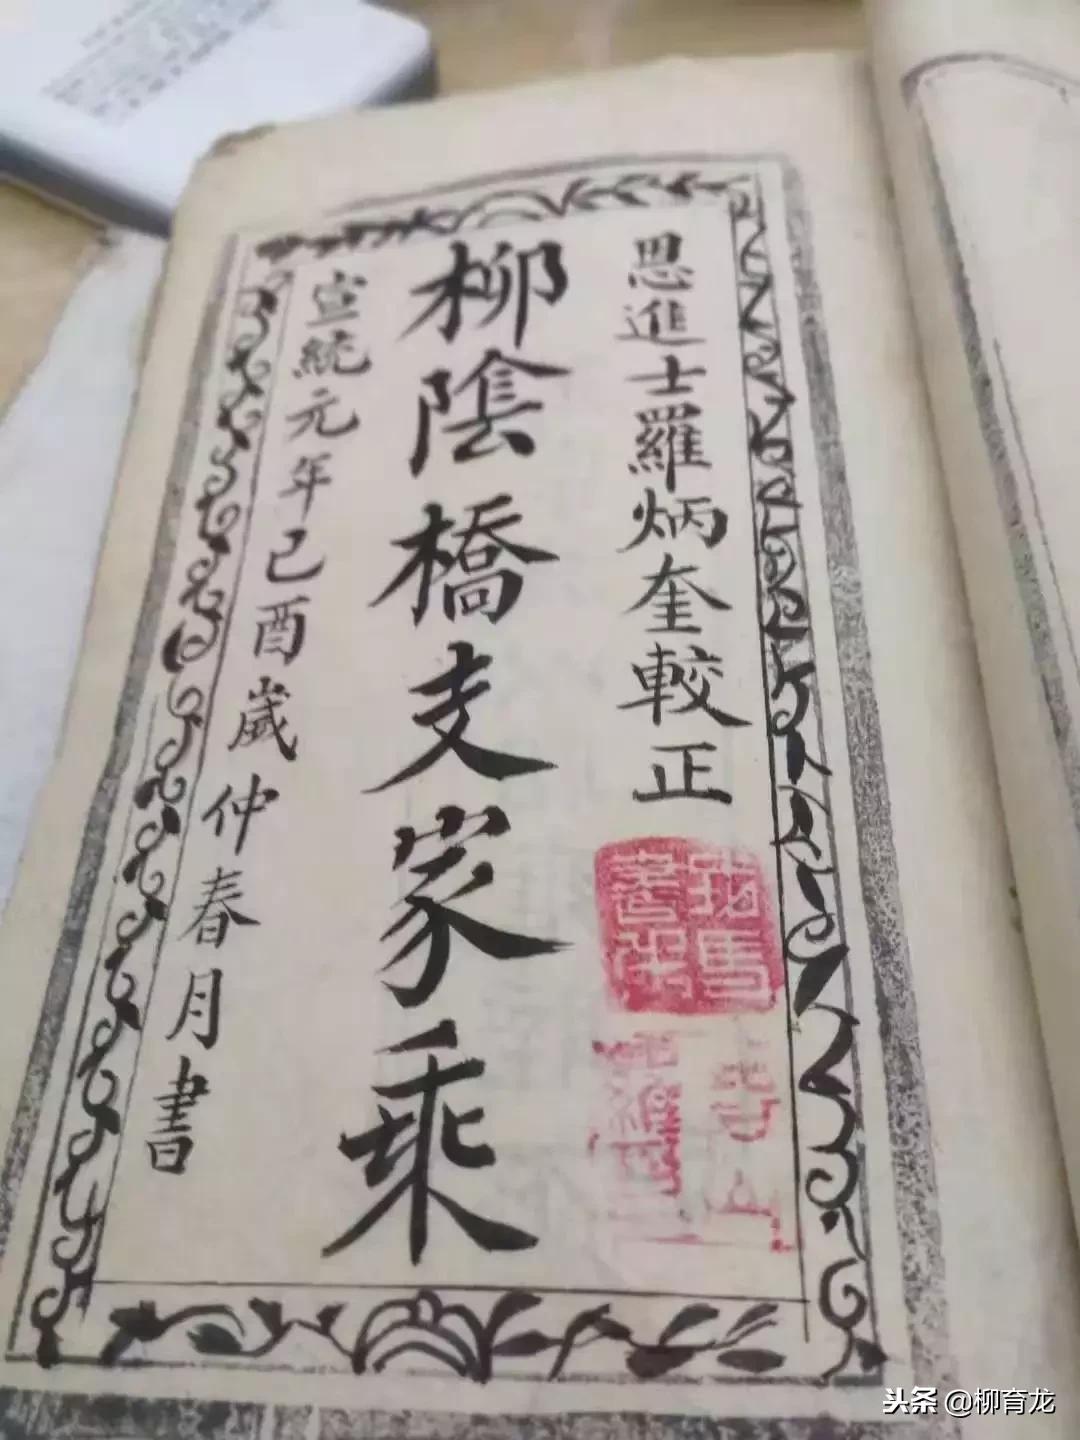 恩進士羅炳奎較正
柳陰橋支家乘
宣統元年己酉歲仲春月書
头条 @柳育龙